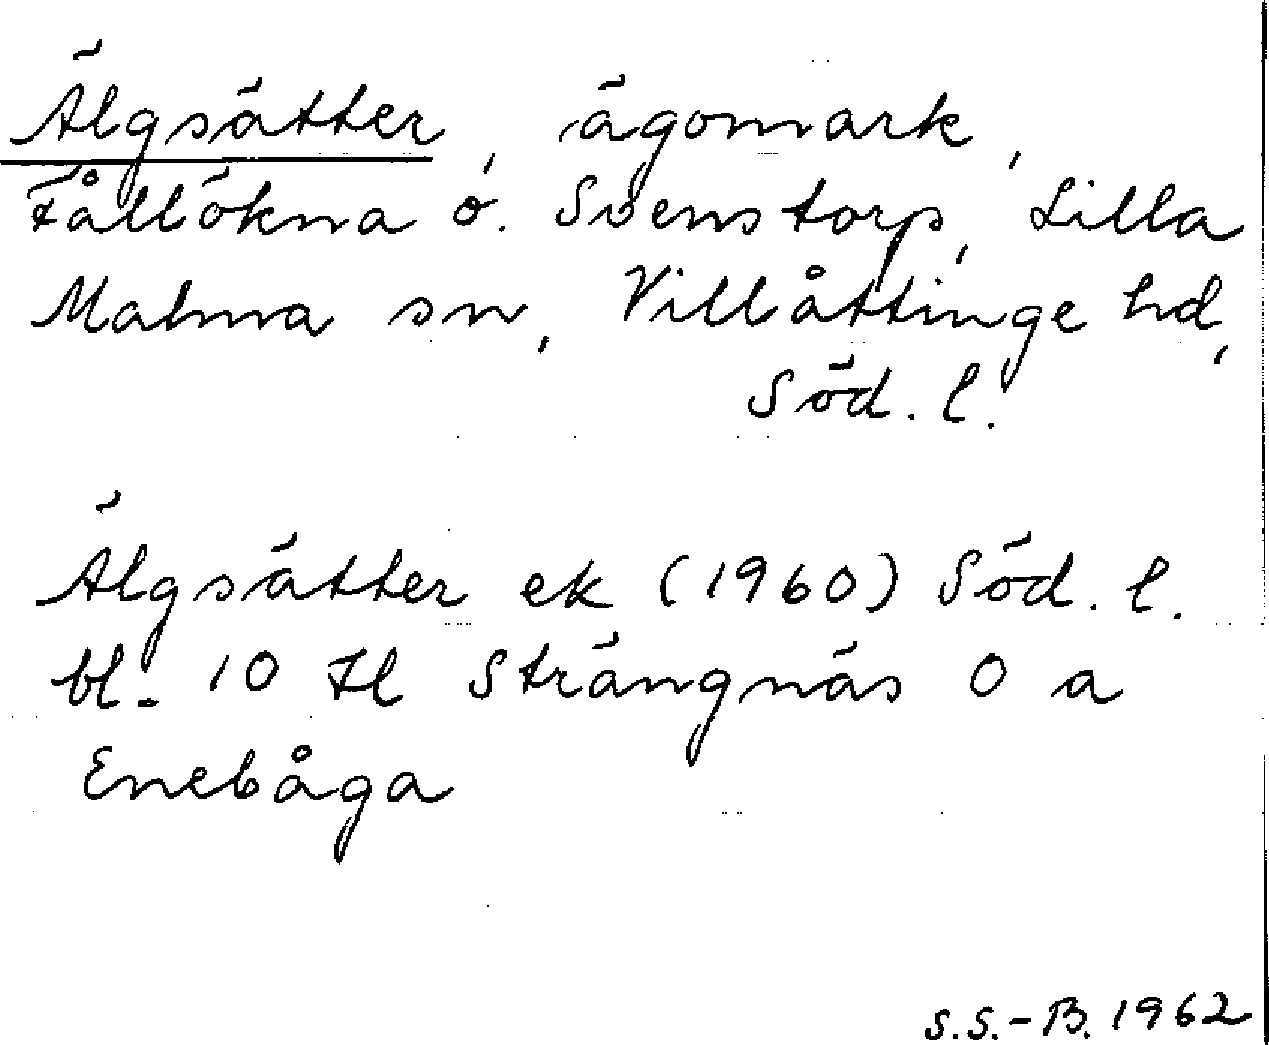 Älgsätter, ägomark,
Fållökna o. Svenstorp, Lilla
Malma sn, Villåttinge hd,
Söd. l.
Älgsätter ek (1960) Söd. l.
bl. 10 H Strängnäs O a
Enebåga
S.S.-B. 1962